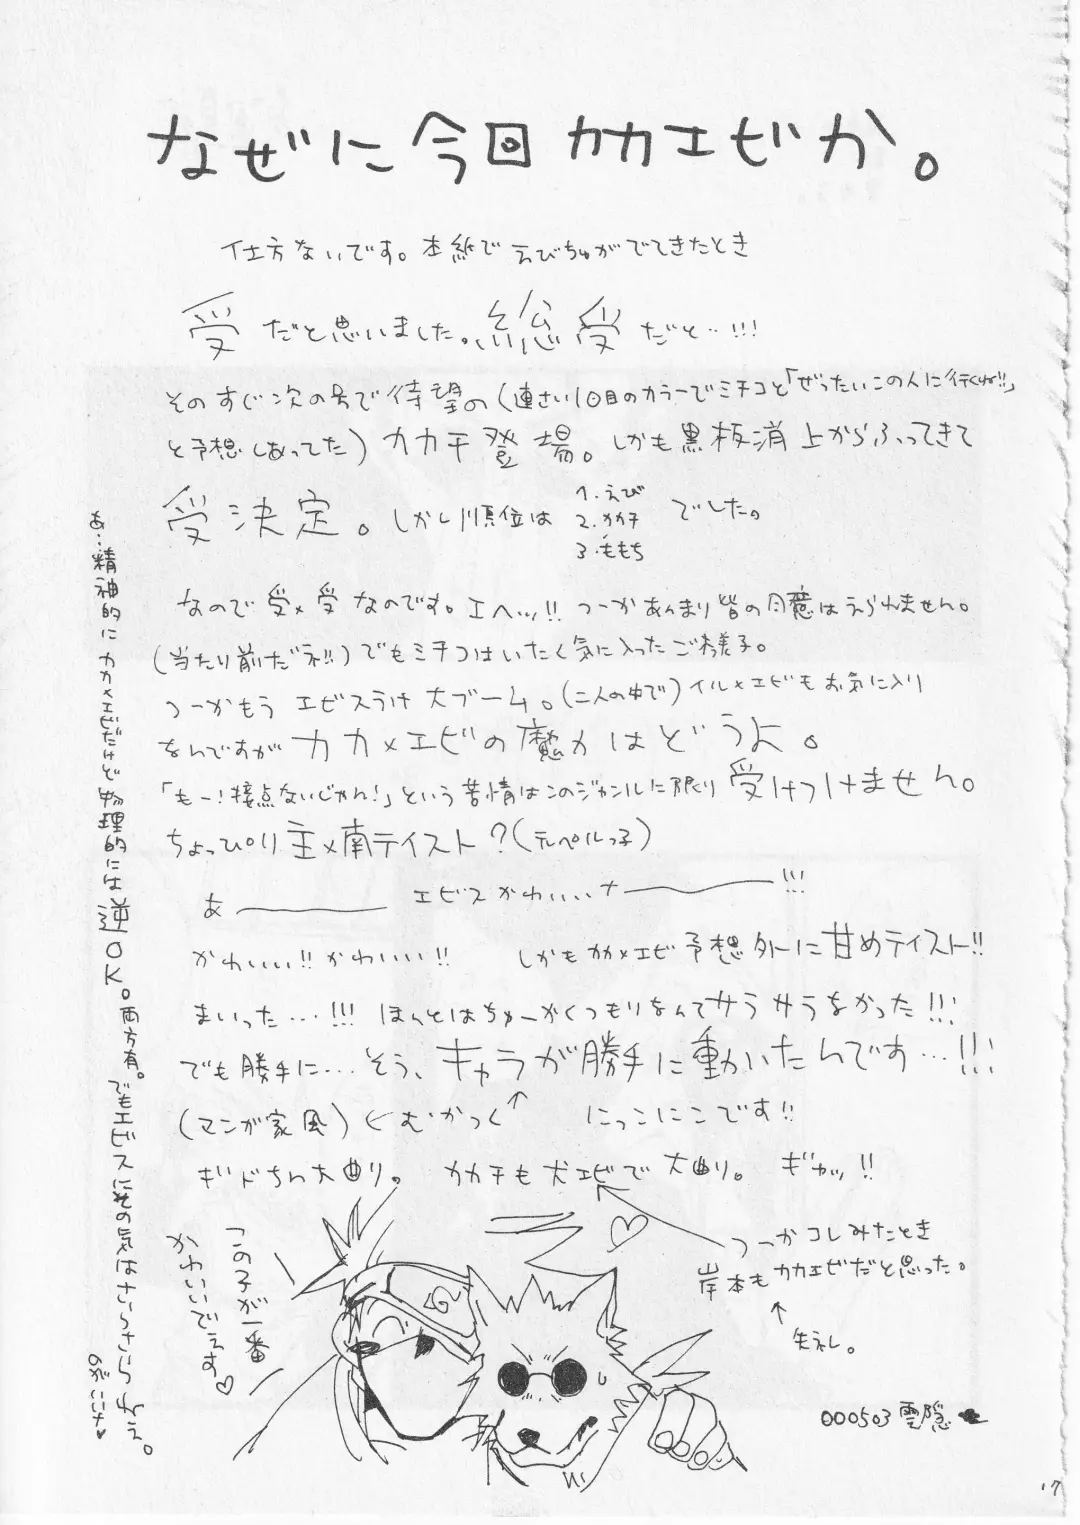 なぜに今回カカエビか。
仕方ないです。本紙でえびちゅがでてきたとき
受だと思いました。総受だと…!!!
そのすぐ次の号で待望の(連さい1回目のカラーでミチコと「ぜったいこの人に行くね!!」
と予想しあってた)カカチ登場。しかも黒板消上からふってきて
受決定。しかし順位は
1.えび
2.カカチ
3.ももち
でした。
なので受×受なのです。エヘッ!! つーかあんまり皆の同意はえられません。
(当たり前だネ!!)でもミチコはいたく気に入ったご様子。
つーかもうエビスうけ大ブーム。(二人の中で)イル×エビもお気に入り
なんですがカカ×エビの魔力はどうよ。
「もー!接点ないじゃん!」という苦情はこのジャンルに限り受けつけません。
ちょっぴり主×南テイスト?(ペルっ子)
あ―――― エビスかわいいナ――――!!!
かわいい!!かわいい!! しかもカカ×エビ予想外に甘めテイスト!!
まいった…!!! ほんとはちゅーかくつもりなんてサラサラなかった!!!
でも勝手に…そう、キャラが勝手に動いたんです…!!!
(マンガ家風)←むかつく↑ にっこにこです!!
ギドちん大曲り。 カカチも犬エビで大曲り。 ギャッ!!
つーかコレみたとき
岸本もカカエビだと思った。
↑
失礼。
この子が一番
かわいいでえす♡
あ…精神的にカカ×エビだけど物理的には逆OK。両方有。でもエビスにその気はさらさらねえ。
のがいいナ♥
000503 雲隠
17